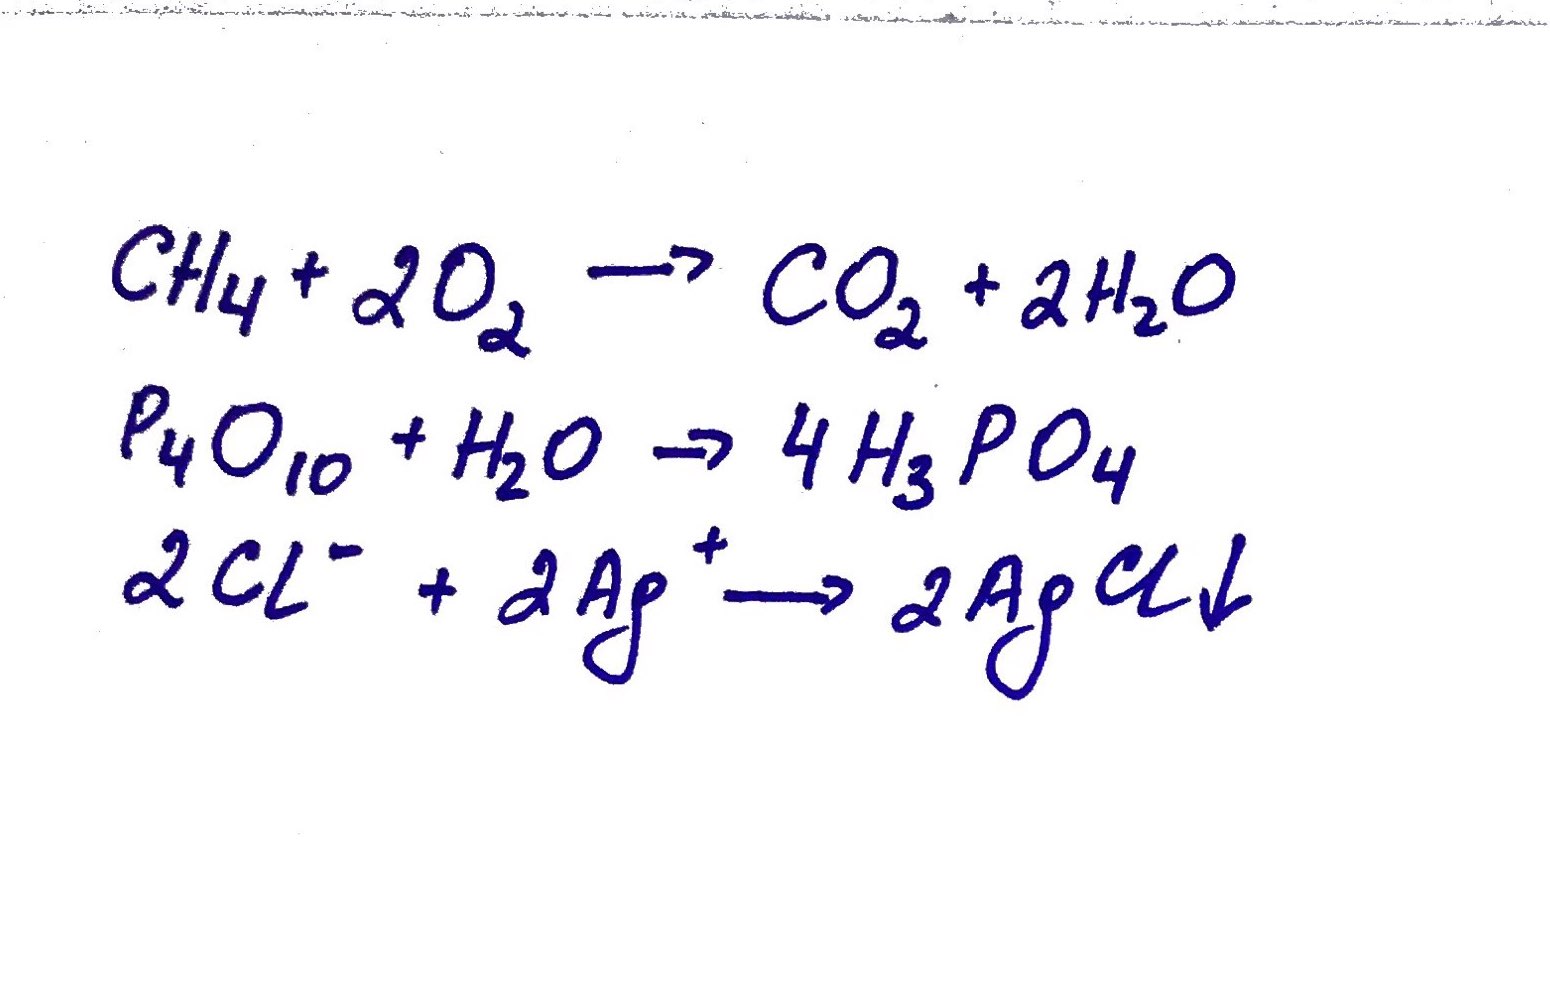 CH₄ + 2O₂ → CO₂ + 2H₂O
P₄O₁₀ + H₂O → 4H₃PO₄
2Cl⁻ + 2Ag⁺ → 2AgCl↓